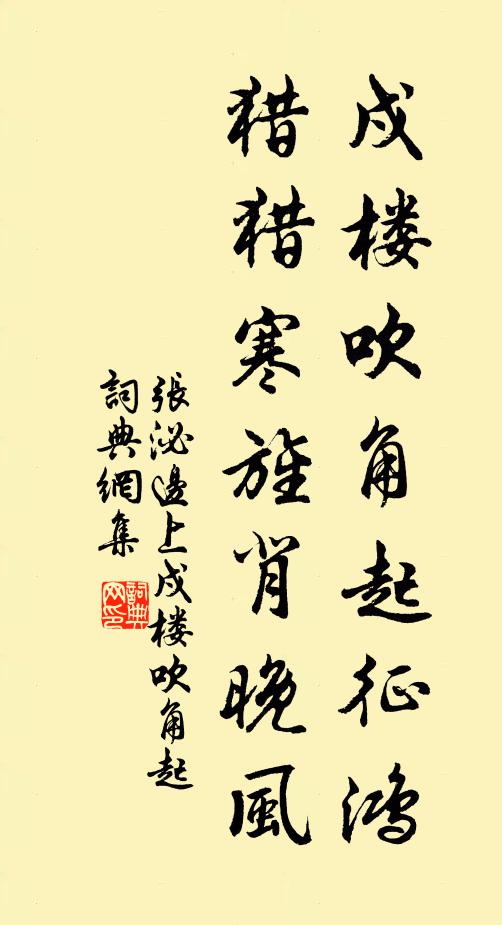 戍楼吹角起征鸿
猎猎寒旌背晚風
張泌邊上戍楼吹角起
詞典網集
詞典
网印